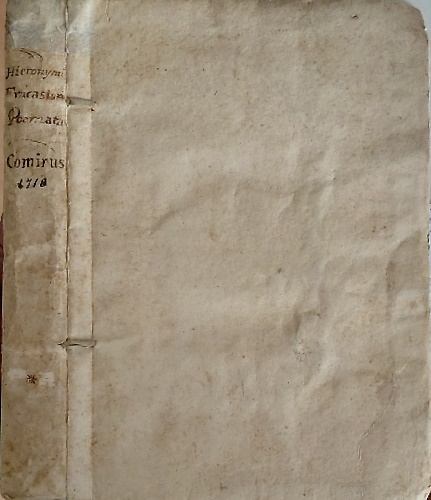 Hieronymi
Fracastorii
Poemata
Cominus
1718
*